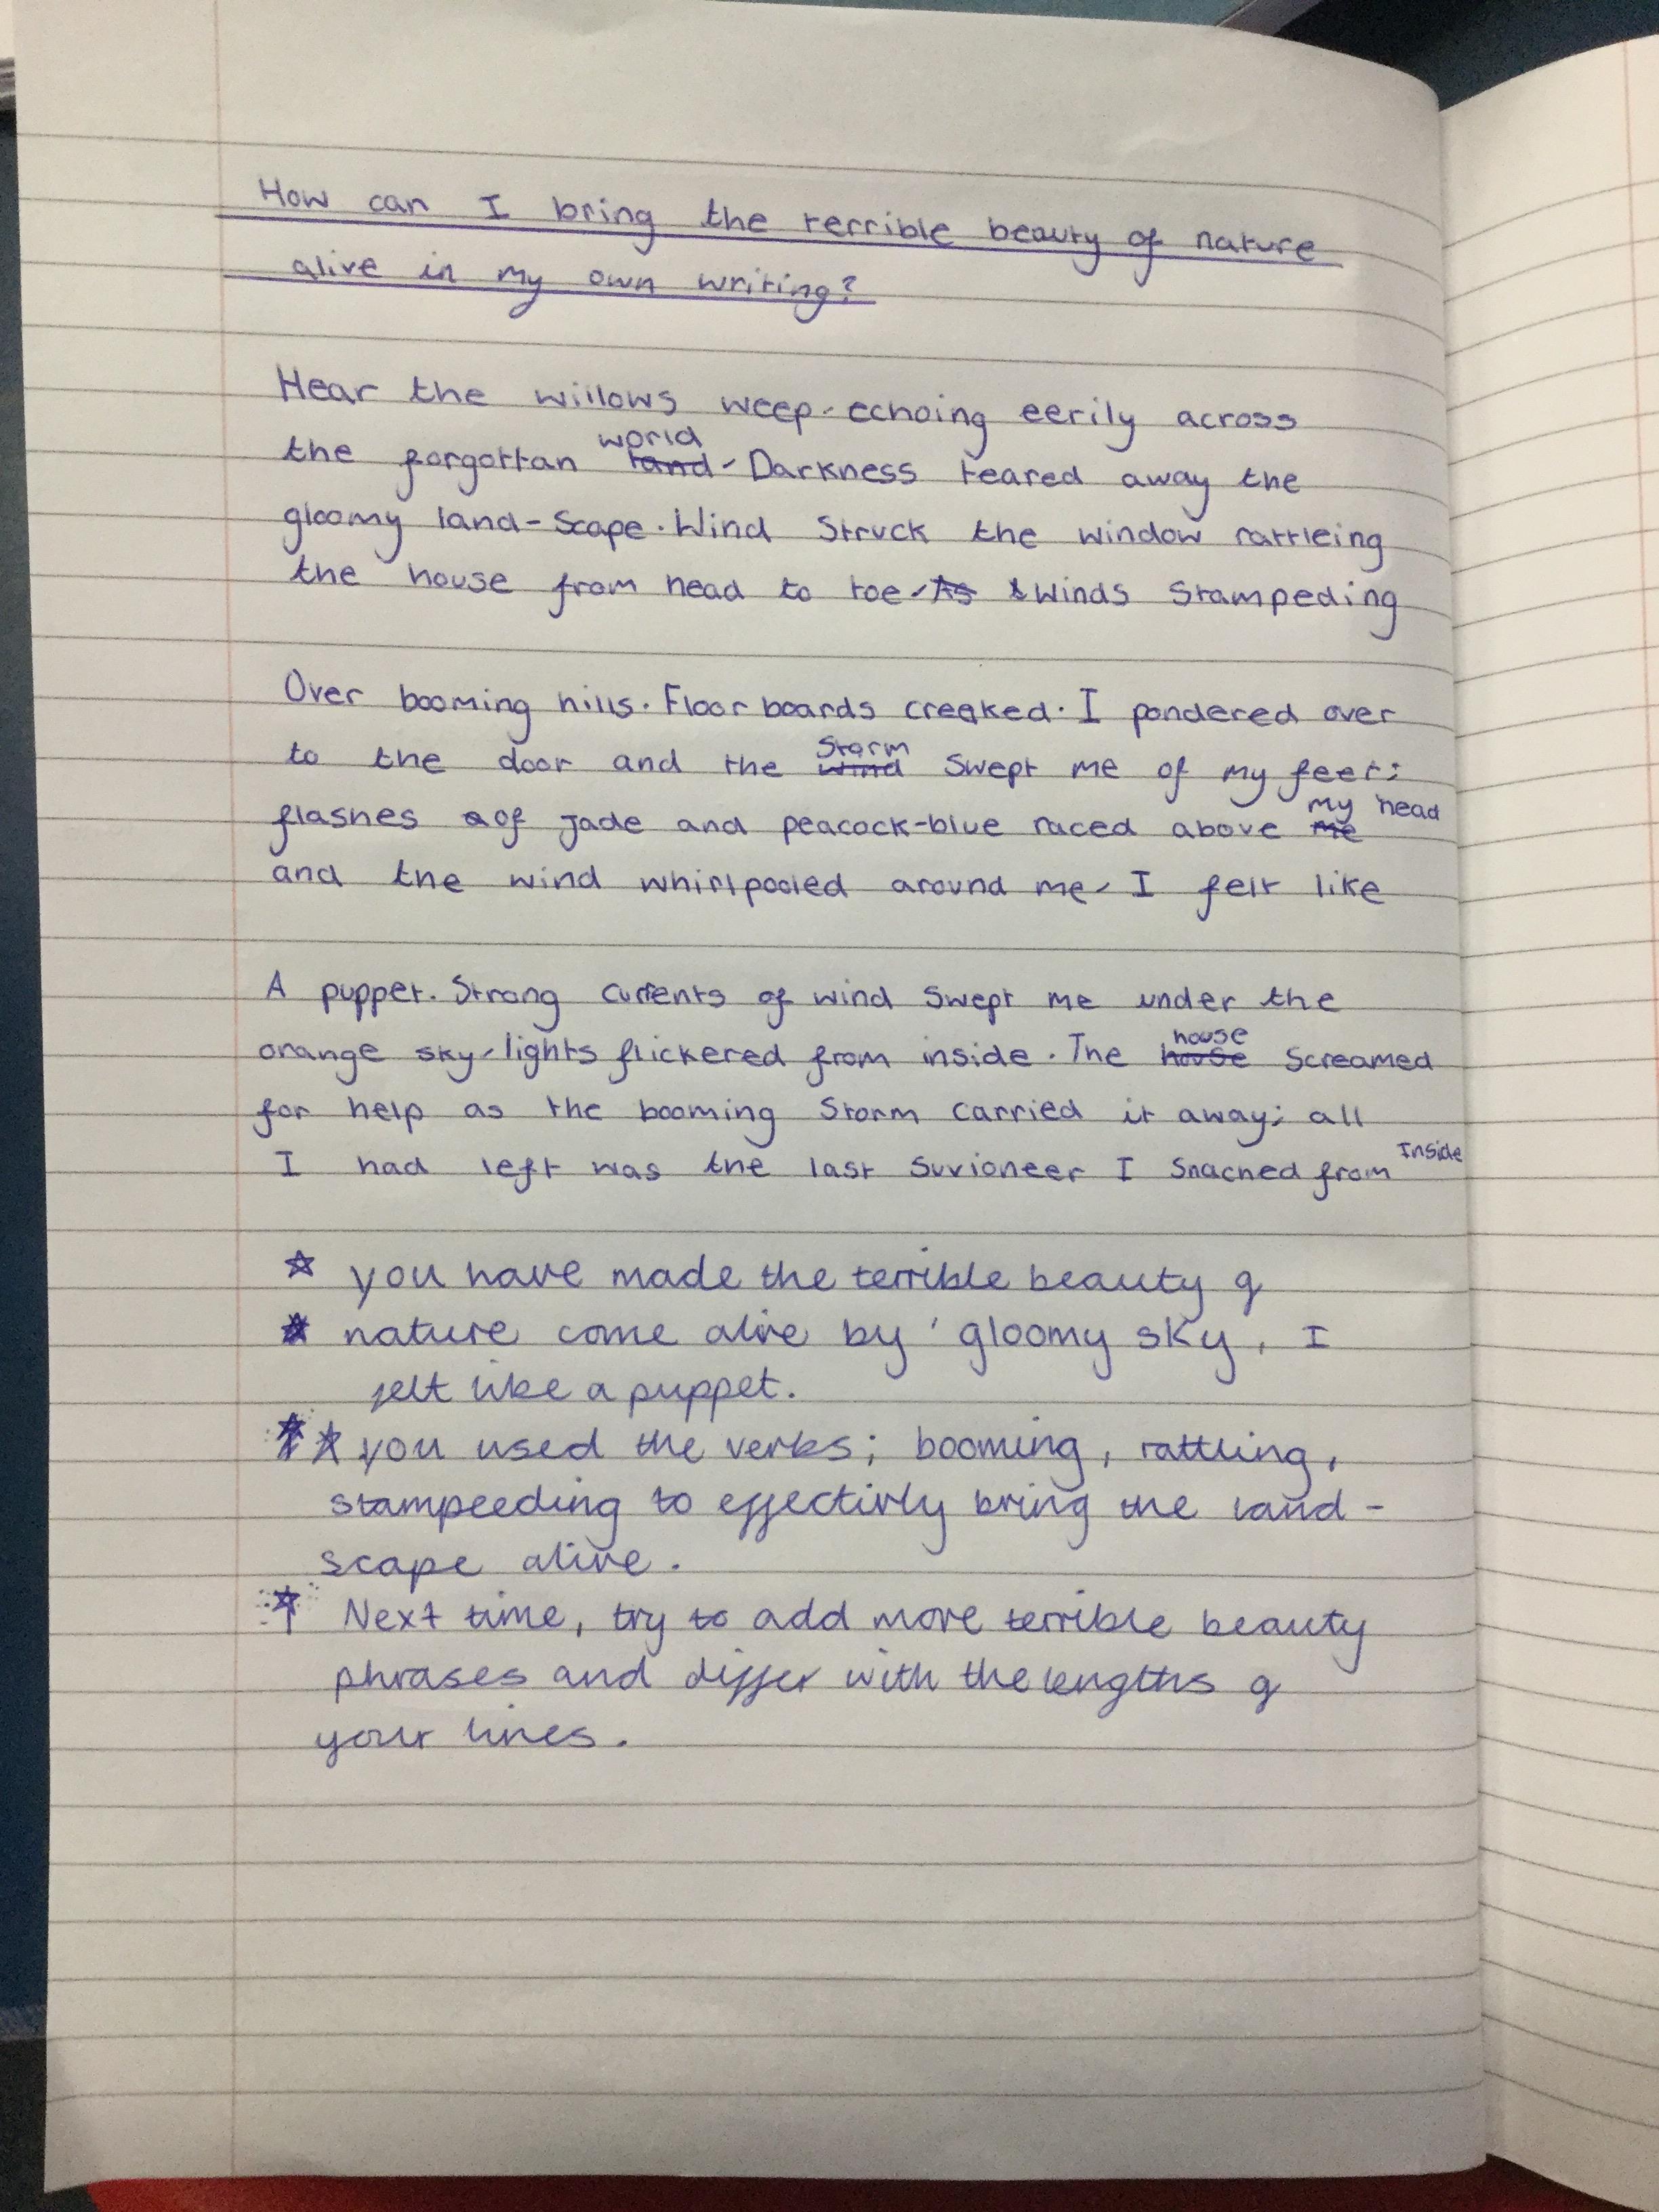 How can I bring the terrible beauty of nature
alive in my own writing?
Hear the willows weep-echoing eerily across
world
the forgottan land-Darkness teared away the
gloomy land-scape. Wind Struck the window rattleing
the house from head to toe-As Winds Stampeding
Over booming hills. Floor boards creaked. I pondered over
Storm
to the door and the wind Swept me of my feet:
my head
flashes of Jade and peacock-blue raced above me
and the wind whirlpooled around me- I felt like
A puppet. Strong currents of wind Swept me under the
orange sky-lights flickered from inside. The house Screamed
house
for help as the booming Storm carried it away; all
I had left was the last Suvioneer I Snached from Inside
you have made the terrible beauty of
nature come alive by 'gloomy sky, I
felt like a puppet.
you used the verbs; booming, rattling,
stampeeding to effectivly bring the land-
scape alive.
Next time, try to add more terrible beauty
phrases and differ with the lengths of
your lines.